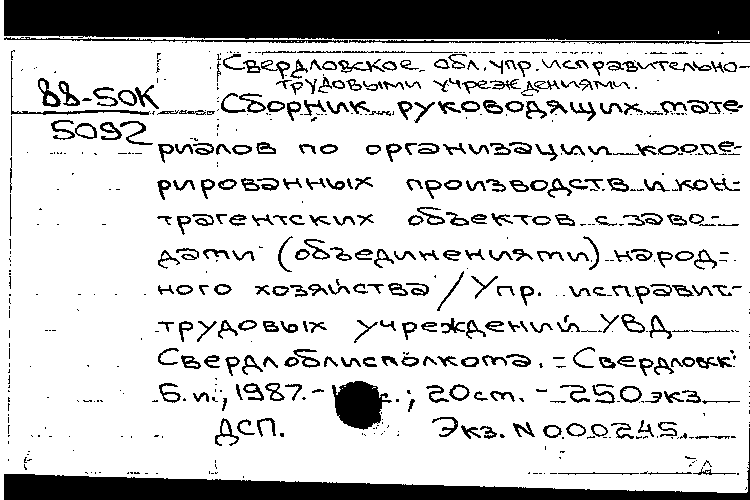 Свердловское обл. упр. исправительно-
трудовыми учреждениями.
88-50К
5092
Сборник руководящих мате-
риалов по организации коопе-
рированных производств и кон-
трагентских объектов с заво-
дами (объединениями) народ-
ного хозяйства / Упр. исправит.-
трудовых учреждений УВД
Свердлоблисполкома. - Свердловск:
Б.и., 1987. - с.; 20 см. - 250 экз.
ДСП. Экз. N 000245.